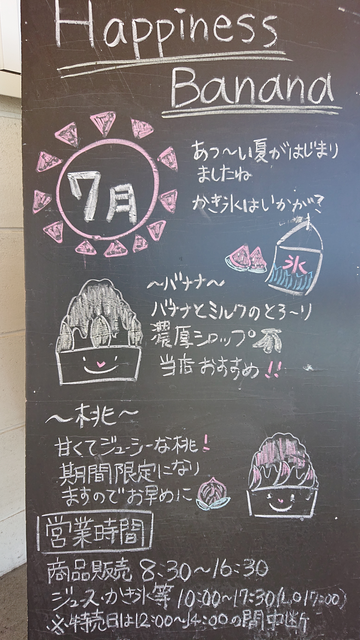 Happiness
Banana
7月
あつ〜い夏がはじまり
ましたね
かき氷はいかが?
氷
〜バナナ〜
バナナとミルクのとろ〜り
濃厚シロップ
当店おすすめ!!
〜桃〜
甘くてジューシーな桃!
期間限定になり
ますのでお早めに
営業時間
商品販売 8:30〜16:30
ジュース・かき氷等 10:00〜17:30(L.o 17:00)
※特売日は12:00〜14:00の間中断